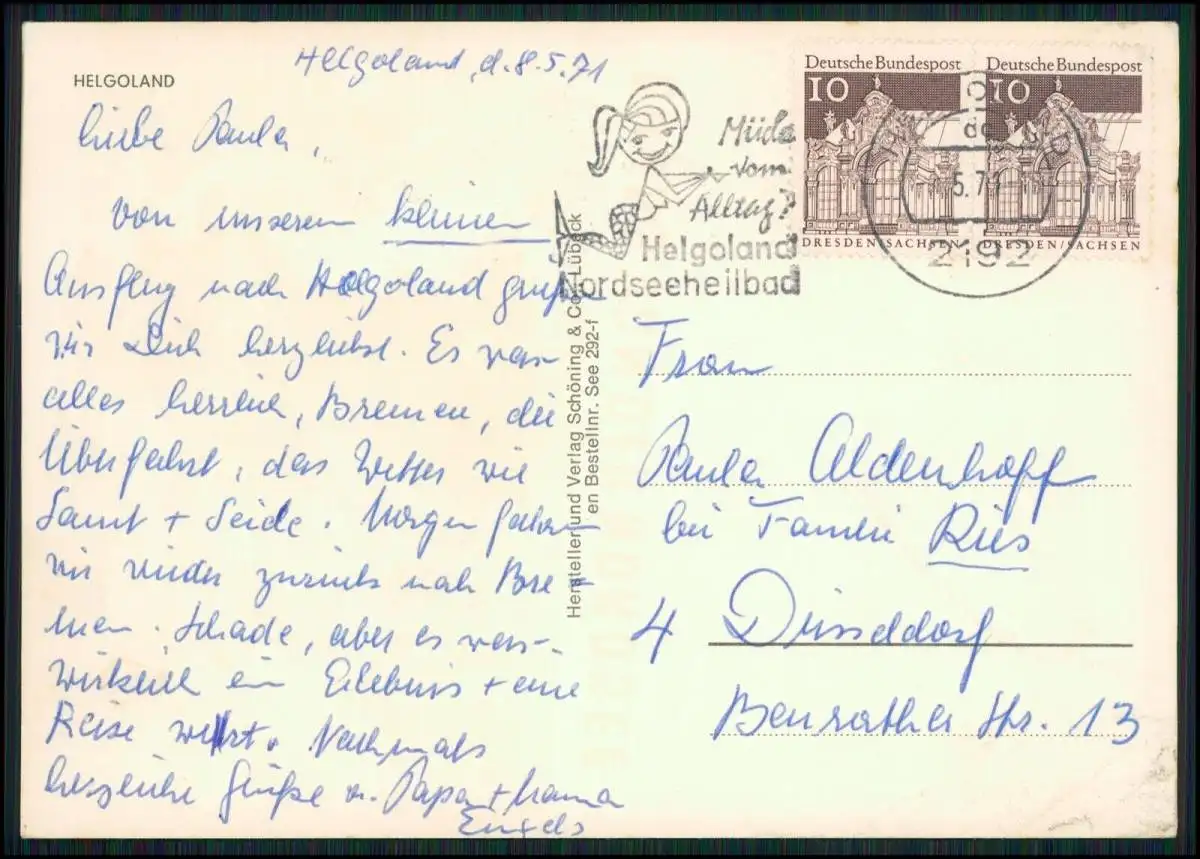 HELGOLAND
Helgoland, d. 8.5.71
liebe Paula,
von unserem kleinen
Ausflug nach Helgoland grüßen
wir Dich herzlichst. Es war
alles herrlich, Bremen, die
Überfahrt, das Wetter wie
Samt + Seide. Morgen fahren
wir wieder zurück nach Bre-
men. Schade, aber es war
wirklich ein Erlebnis + eine
Reise wert. Nochmals
herzliche Grüße v. Papa + Mama
Engels
Hersteller und Verlag Schöning & Co Lübeck
en Bestellnr. See 292-f
Müde
vom
Alltag?
Helgoland
Nordseeheilbad
Deutsche Bundespost
10
DRESDEN/SACHSEN
Deutsche Bundespost
10
DRESDEN/SACHSEN
5.71
2192
Frau
Paula Aldenhoff
bei Familie Ries
4 Düsseldorf
Benrather Str. 13